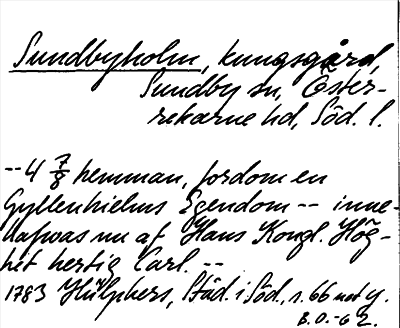 Sundbyholm, kungsgård,
Sundby sn, Öster-
rekarne hd, Söd. l.
-- 4 7/8 hemman, fordom en
Gyllenhielms Egendom -- inne-
hafwas nu af Hans Kongl. Hög-
het hertig Carl. --
1783 Hülphers, Städ. i Söd., s. 66 not y.
B.O.-62.